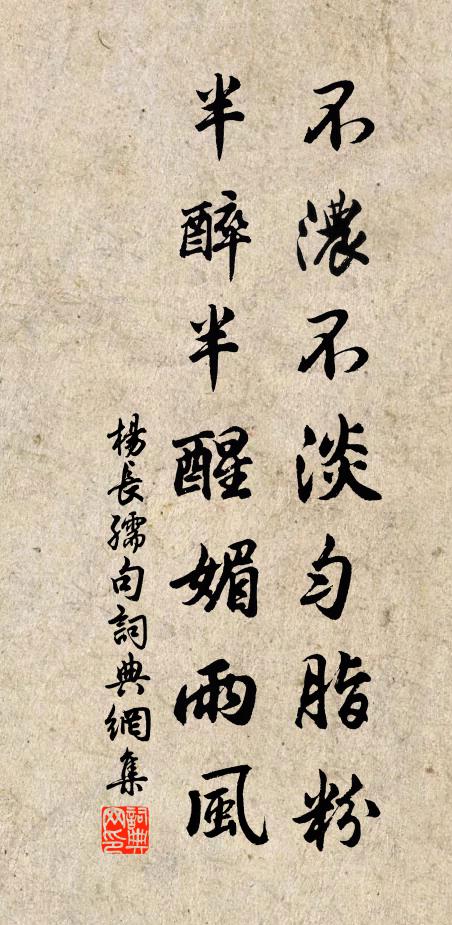 不濃不淡勻脂粉
半醉半醒媚雨風
楊長孺句詞典網集
詞典网印